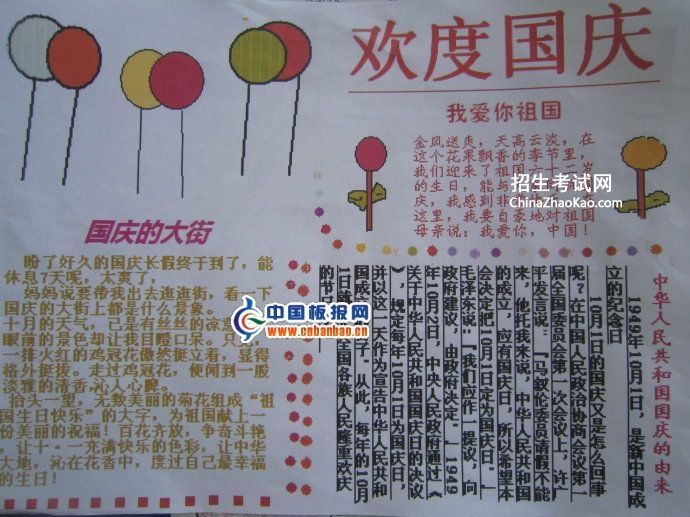 欢度国庆
我爱你祖国
金凤送爽，天高云淡，在
这个花果飘香的季节里，
我们迎来了祖国六十三岁
的生日，能与
庆，我感到非
这里，我要自豪地对祖国
母亲说：我爱你，中国！
招生考试网
ChinaZhaoKao.com
国庆的大街
盼了好久的国庆长假终于到了，能
休息7天呢，太爽了，
妈妈说要带我出去逛逛街，看一下
国庆的大街上都是什么景象。
十月的天气，己是有丝丝的凉意
眼 却让我目瞪口呆。只
一排火红的鸡冠花傲然挺立着，显得
格外挺拨。走过鸡冠花，便闻到一股
淡雅的清香沁人心脾。
抬头一望，无数美丽的菊花组成“祖
国生日快乐”的大字，为祖国献上一
份美丽的祝福！百花齐放，争奇斗艳
，让十·一充满快乐的色彩，让中华
大地，沁在花香中，度过自己最幸福
的生日！
中国板报网
www.cnbanbao.cn
中华人民共和国国庆的由来
1949年10月1日，是新中国成
立的纪念日
10月1日的国庆又是怎么回事
呢？在中国人民政治协商会议第一
届全国委员会第一次会议上，许广
平发言说：“马叙伦委员请假不能
来，他托我来说，中华人民共和国
的成立，应有国庆日，所以希望本
会决定把10月1日定为国庆日”。
毛泽东说：“我们应作一提议，向
政府建议，由政府决定。”1949
年10月2日，中央人民政府通过《
关于中华人民共和国国庆日的决议
》，规定每年10月1日为国庆日，
并以这一天作为宣告中华人民共和
国成 子。从此，每年的10月
1日就 国各族人民隆重欢庆
的节